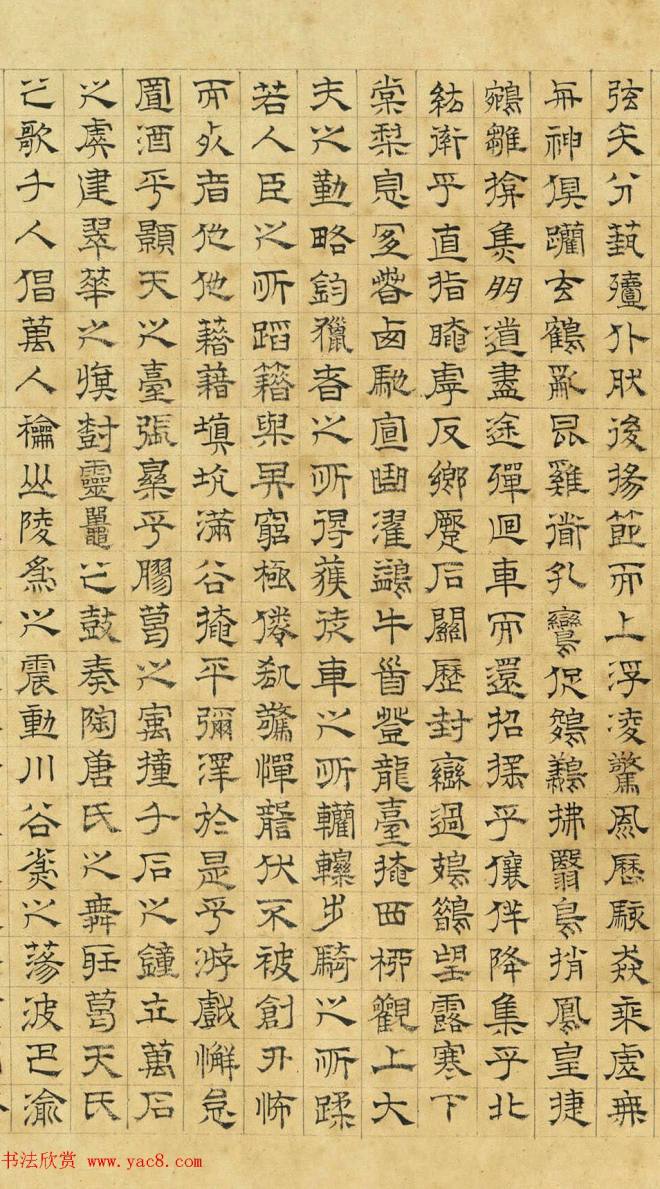 弦矢分蓺殪仆肰後揚節而上浮凌驚風歷駭猋乘虛無
與神俱躪玄鶴亂昆雞遒孔鸞促鵕鸃拂翳鳥捎鳳皇捷
鵷雛揜焦朋道盡途殫迴車而還招搖乎儴佯降集乎北
紘率乎直指晻乎反鄉蹷石關歷封巒過鳷鵲望露寒下
棠梨息宜春西馳宣曲濯鷁牛首登龍臺掩西柳觀上大
夫之勤略鈞獵者之所得獲徒車之所轥轢步騎之所蹂
若人臣之所蹈籍與其窮極倦𠊬驚憚讋伏不被創刃怖
而死者他他藉藉填坑滿谷掩平彌澤於是乎游戲懈怠
置酒乎顥天之臺張樂乎膠葛之寓撞千石之鐘立萬石
之虡建翠華之旗樹靈鼉之鼓奏陶唐氏之舞聽葛天氏
之歌千人倡萬人龢山陵為之震動川谷為之蕩波巴渝
书法欣赏 www.yac8.com